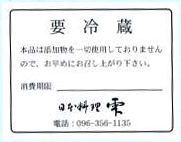 要冷蔵
本品は添加物を一切使用しておりません
ので、お早めにお召し上がり下さい。
消費期限
日本料理 雫
電話：096-356-1135